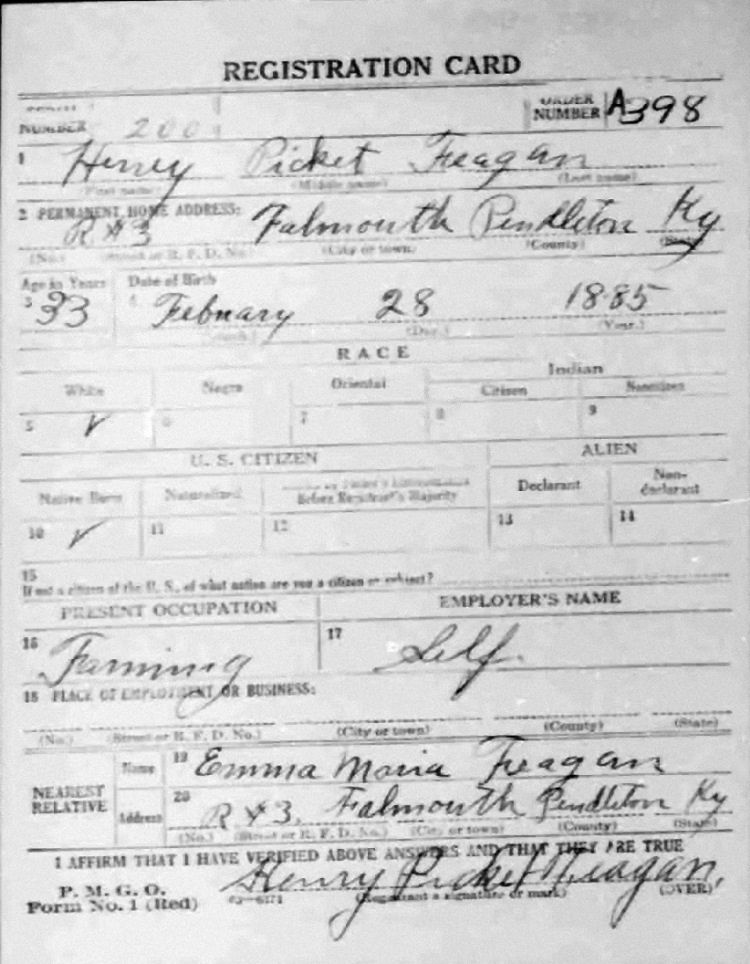 REGISTRATION CARD
NUMBER 200 ORDER NUMBER A398
1 Henry Picket Feagan
(First name) (Middle name) (Last name)
2 PERMANENT HOME ADDRESS:
R #3 Falmouth Pendleton Ky
(No.) (Street or R. F. D. No.) (City or town) (County) (State)
Age in Years Date of Birth
3 33 4 Febuary 28 1885
(Month.) (Day.) (Year.)
RACE
White Negro Oriental Indian
Citizen Noncitizen
5 ✓ 6 7 8 9
U. S. CITIZEN ALIEN
Native Born Naturalized Before Registrant's Majority Declarant Non-declarant
10 ✓ 11 12 13 14
15
If not a citizen of the U. S., of what nation are you a citizen or subject?
PRESENT OCCUPATION EMPLOYER'S NAME
16 Farming 17 Self.
18 PLACE OF EMPLOYMENT OR BUSINESS:
(No.) (Street or R. F. D. No.) (City or town) (County) (State)
NEAREST RELATIVE
Name 19 Emma Maria Feagan
Address 20 R #3, Falmouth Pendleton Ky
(No.) (Street or R. F. D. No.) (City or town) (County) (State)
I AFFIRM THAT I HAVE VERIFIED ABOVE ANSWERS AND THAT THEY ARE TRUE
P. M. G. O.
Form No. 1 (Red) 03-6171 Henry Picket Feagan,
(Registrant's signature or mark) (OVER)